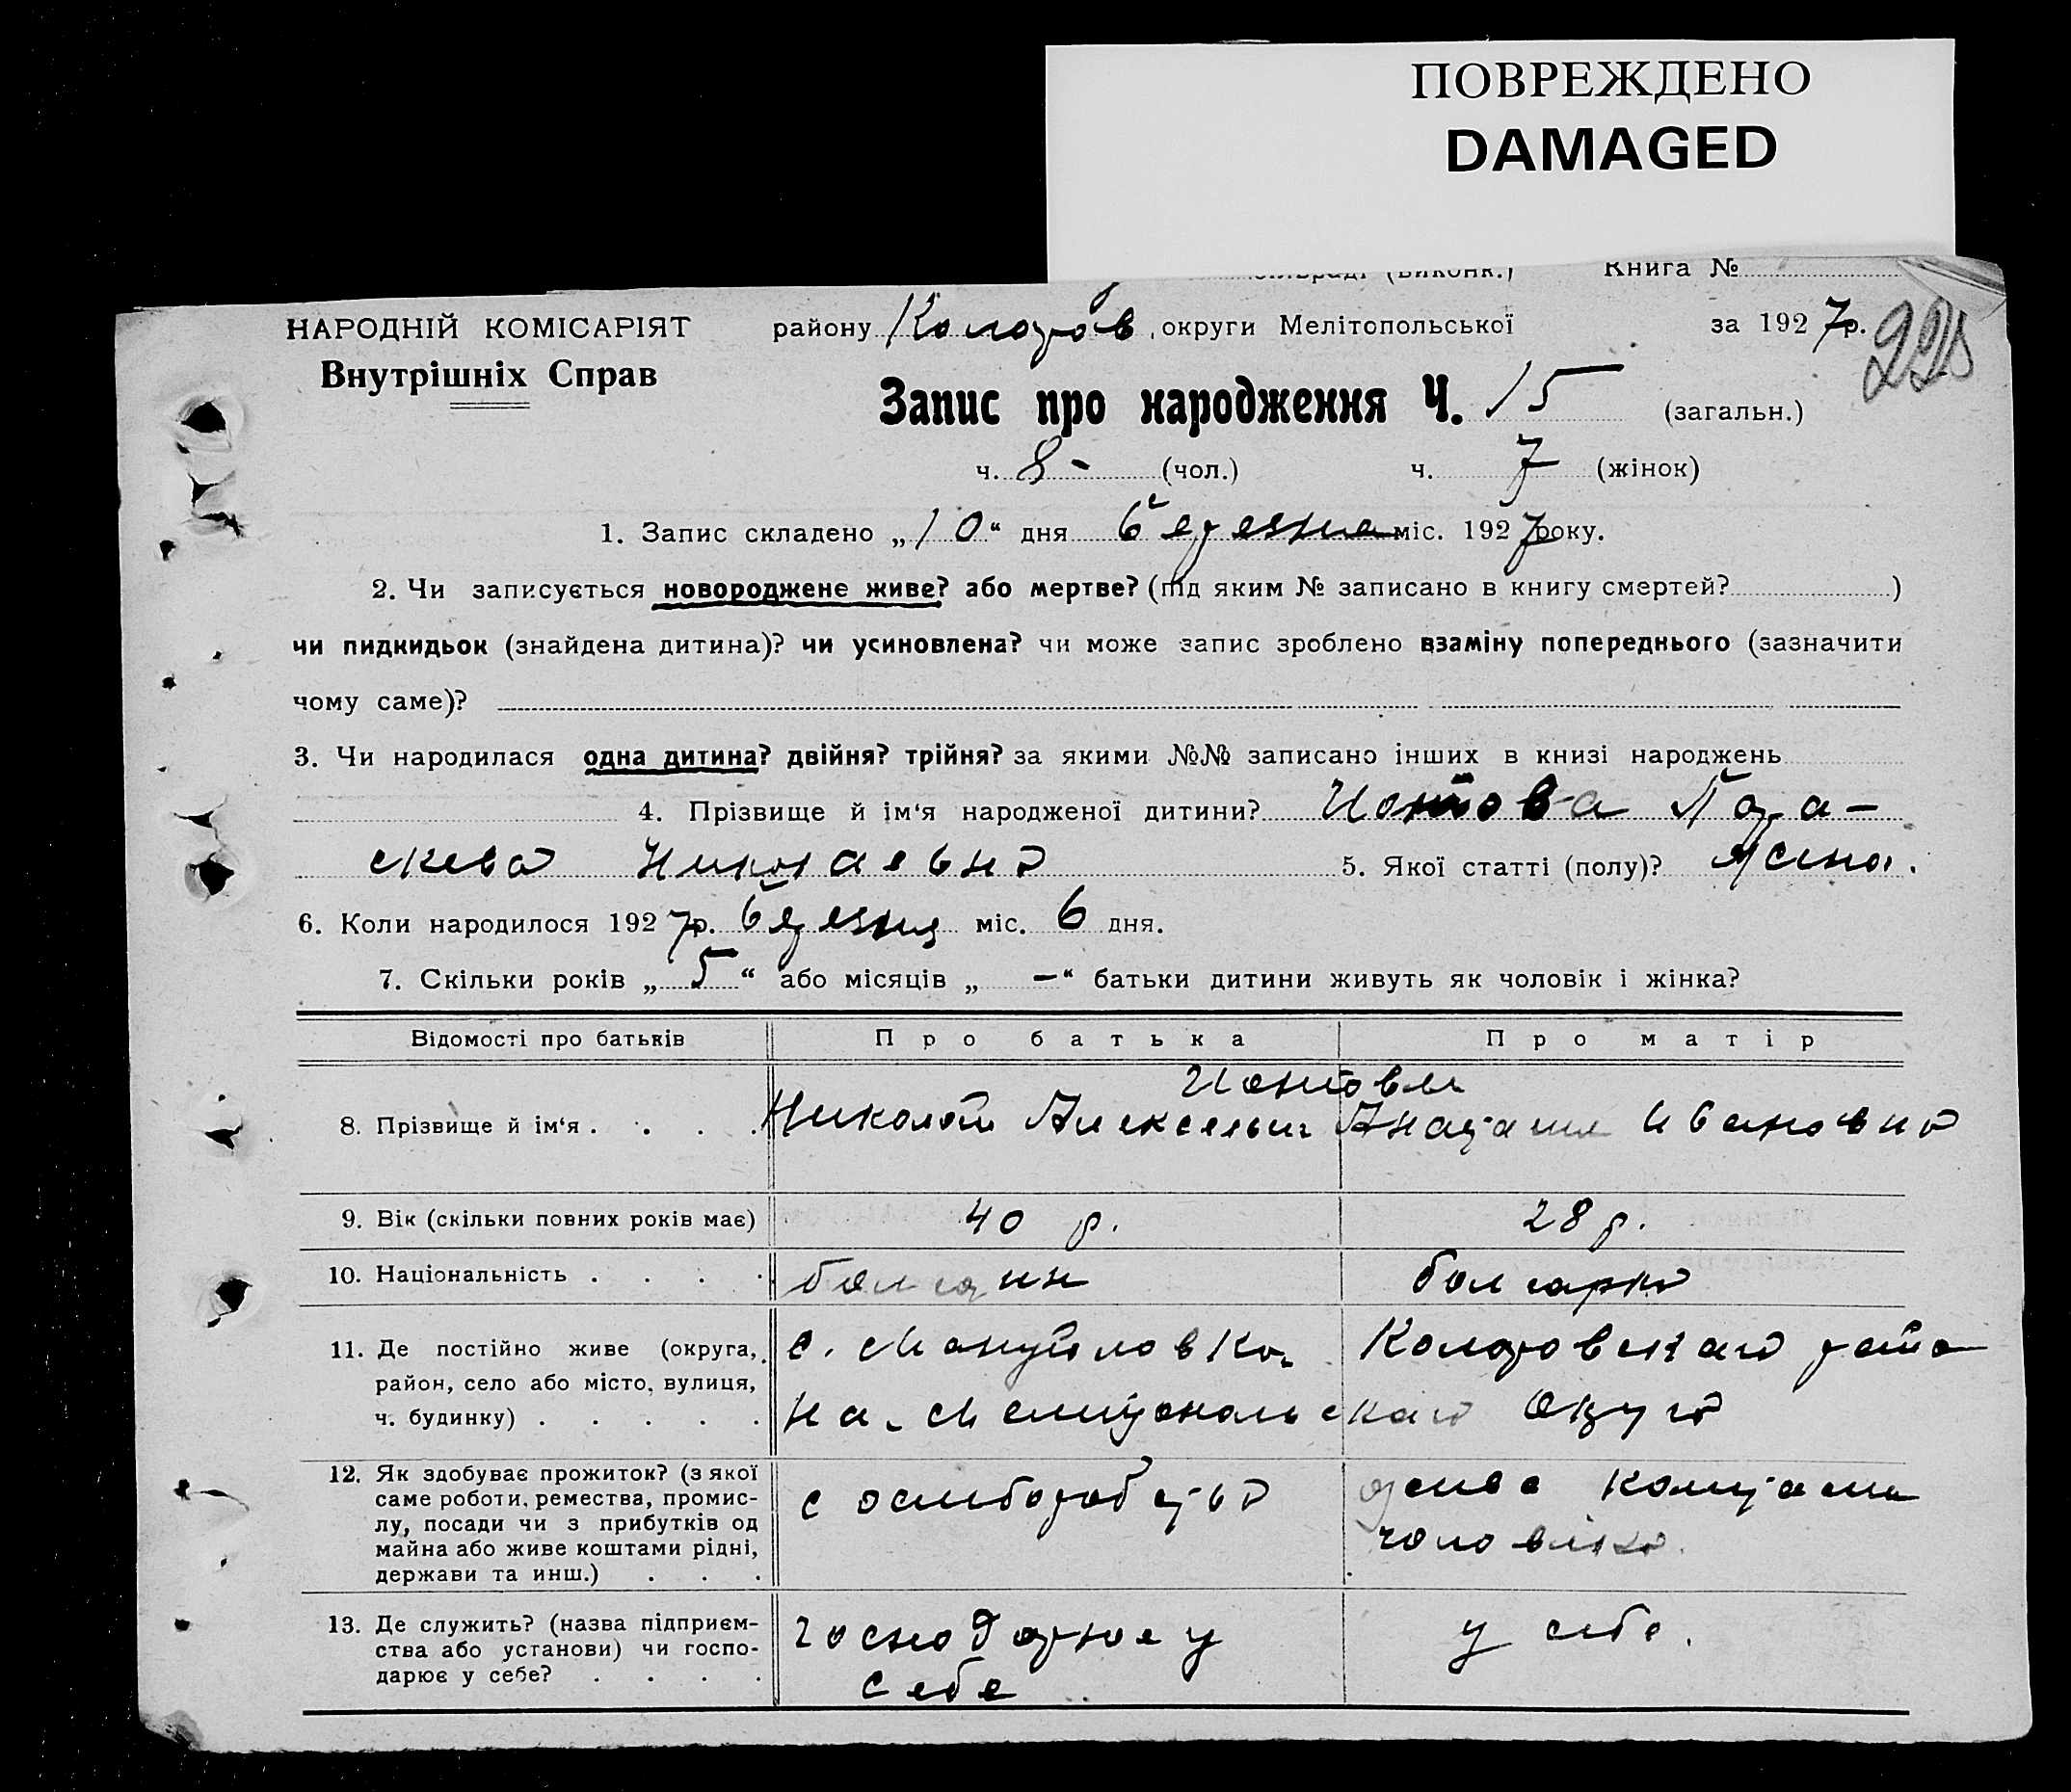 ПОВРЕЖДЕНО
DAMAGED
Книга №
НАРОДНІЙ КОМІСАРІЯТ
Внутрішніх Справ
району Коларов, округи Мелітопольської за 1927р.
Запис про народження Ч. 15 (загальн.)
ч. 8 - (чол.) ч. 7 (жінок)
1. Запис складено „10“ дня березня міс. 1927року.
2. Чи записується новороджене живе? або мертве? (під яким № записано в книгу смертей? )
чи пидкидьок (знайдена дитина)? чи усиновлена? чи може запис зроблено взаміну попереднього (зазначити
чому саме)?
3. Чи народилася одна дитина? двійня? трійня? за якими №№ записано інших в книзі народжень
4. Прізвище й ім‘я народженої дитини? Пара-
скева Николаевна 5. Якої статті (полу)? жіно.
6. Коли народилося 1927р. березня міс. 6 дня.
7. Скільки років „5“ або місяців „-“ батьки дитини живуть як чоловік і жінка?
Відомості про батьків Про батька Про матір
8. Прізвище й ім‘я . . . . Николай Алексеевич Ивановна
9. Вік (скільки повних років має) 40 р. 28 р.
10. Національність . . . . болгарин болгарка
11. Де постійно живе (округа, с. Мануйловка Коларовского райо-
район, село або місто, вулиця,
ч. будинку) . . . . . на Мелитопольского округа
12. Як здобуває прожиток? (з якої
саме роботи, ремества, промис-
лу, посади чи з прибутків од
майна або живе коштами рідні,
держави та инш.) . . . с хлиборобства живе коштами
чоловіка.
13. Де служить? (назва підприєм-
ства або установи) чи госпо-
дарює у себе? . . . . господарює у у себе.
себе